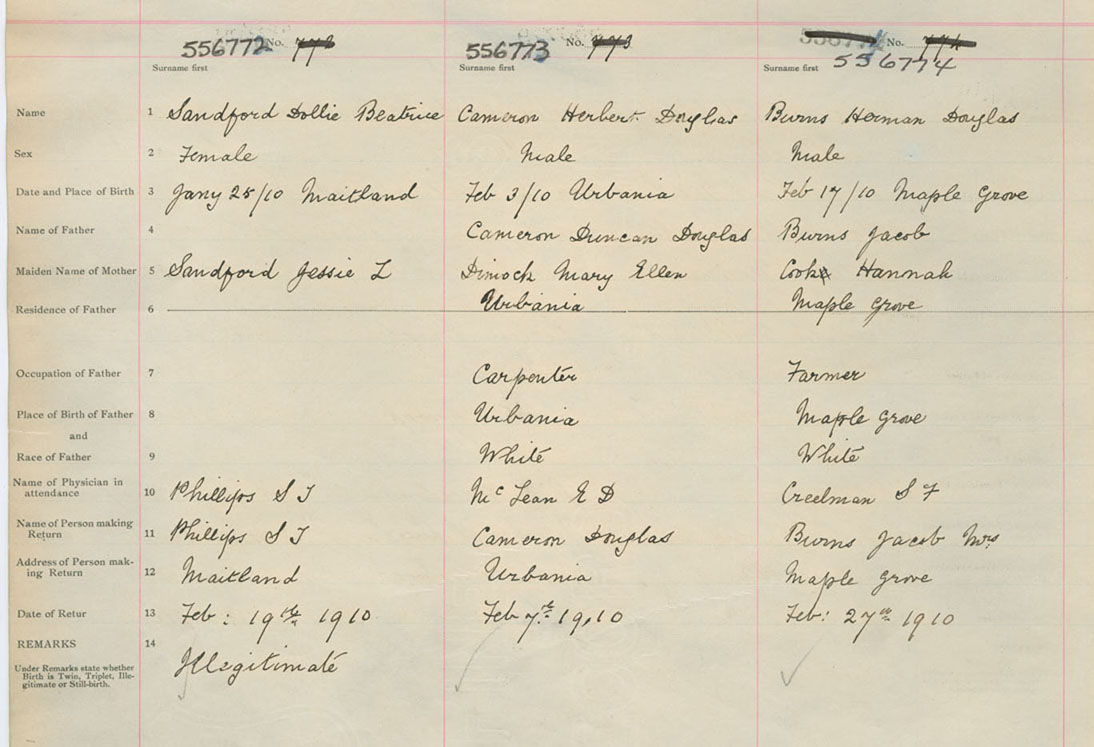 556772 No. 772 556773 No. 773 No. 774
Surname first Surname first Surname first 556774
Name 1 Sandford Dollie Beatrice Cameron Herbert Douglas Burns Herman Douglas
Sex 2 Female Male Male
Date and Place of Birth 3 Jany 25/10 Maitland Feb 3/10 Urbania Feb 17/10 Maple Grove
Name of Father 4 Cameron Duncan Douglas Burns Jacob
Maiden Name of Mother 5 Sandford Jessie L Dimock Mary Ellen Cook Hannah
Residence of Father 6 Urbania Maple Grove
Occupation of Father 7 Carpenter Farmer
Place of Birth of Father 8 Urbania Maple Grove
and
Race of Father 9 White White
Name of Physician in
attendance 10 Phillips S J McLean E D Creelman S F
Name of Person making
Return 11 Phillips S J Cameron Douglas Burns Jacob Mrs
Address of Person mak-
ing Return 12 Maitland Urbania Maple Grove
Date of Retur 13 Feb: 19th 1910 Feb 7th 1910 Feb: 27th 1910
REMARKS 14
Under Remarks state whether
Birth is Twin, Triplet, Ille-
gitimate or Still-birth. Illegitimate